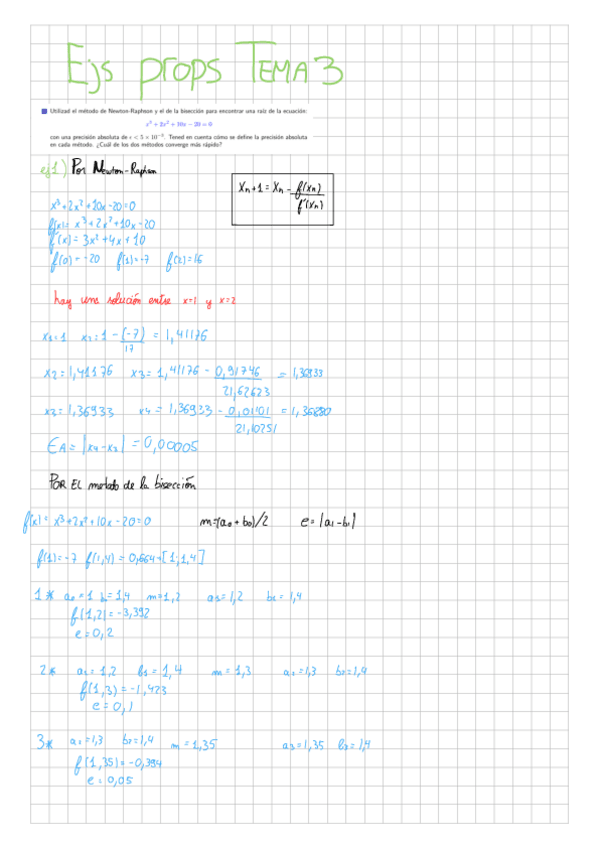 Ejs props TEMA 3
Utilizad el método de Newton-Raphson y el de la bisección para encontrar una raíz de la ecuación:
x³ + 2x² + 10x − 20 = 0
con una precisión absoluta de ϵ < 5 × 10⁻³. Tened en cuenta cómo se define la precisión absoluta
en cada método. ¿Cuál de los dos métodos converge más rápido?
ej1) Por Newton-Raphson
Xn+1 = Xn - f(xn)/f'(xn)
x³+2x²+10x-20=0
f(x)= x³+2x²+10x-20
f'(x)= 3x²+4x+10
f(0)=-20 f(1)=-7 f(2)=16
hay une solución entre x=1 y x=2
x1=1 x2=1-(-7)/17 = 1,41176
x2=1,41176 x3=1,41176 - 0,91746/21,62623 = 1,36933
x3=1,36933 x4=1,36933 - 0,01101/21,10251 = 1,36880
EA=|x4-x3|=0,00005
POR EL metodo de la bisección
f(x)= x³+2x²+10x-20=0 m=(a0+b0)/2 e=|a1-b1|
f(1)=-7 f(1,4)=0,664→[1;1,4]
1* a0=1 b0=1,4 m=1,2 a1=1,2 b1=1,4
f(1,2)=-3,392
e=0,2
2* a1=1,2 b1=1,4 m=1,3 a2=1,3 b2=1,4
f(1,3)=-1,423
e=0,1
3* a2=1,3 b2=1,4 m=1,35 a3=1,35 b3=1,4
f(1,35)=-0,394
e=0,05